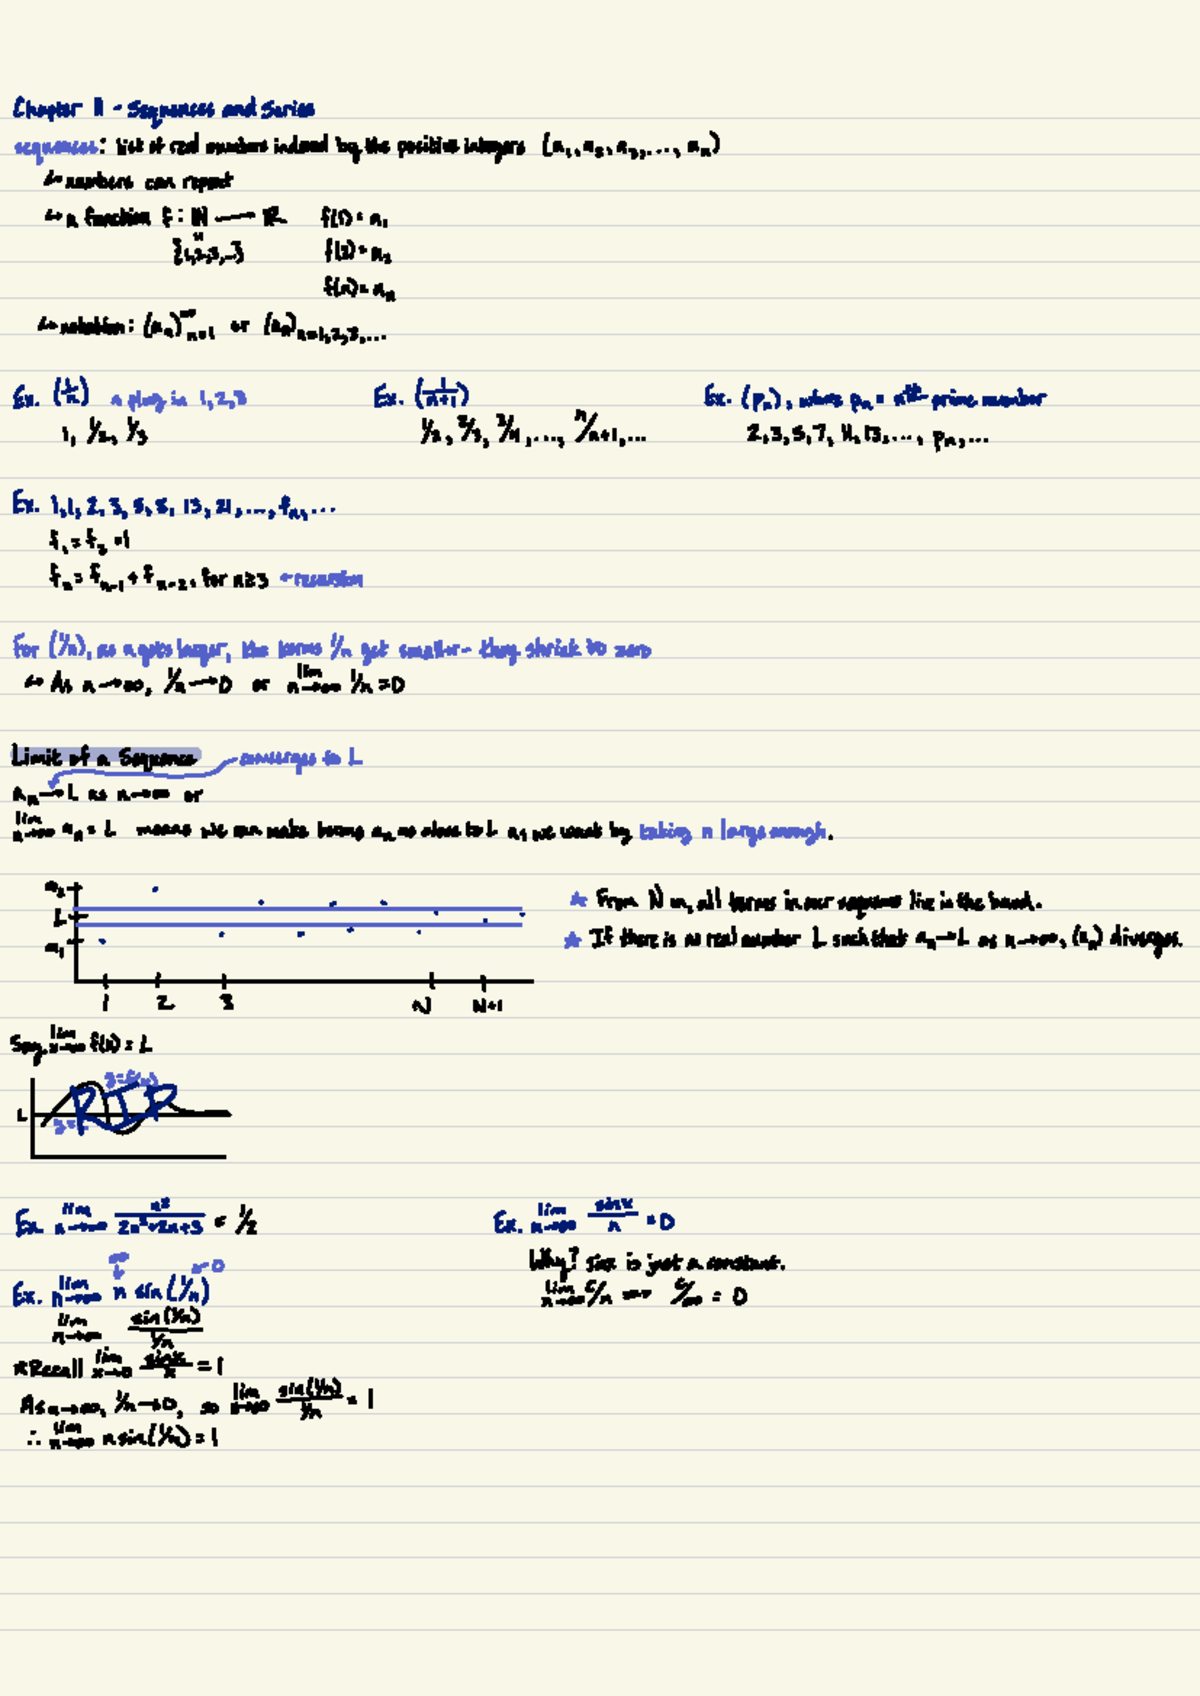 Chapter 11 - Sequences and Series
sequences: list of real numbers indexed by the positive integers (a₁, a₂, a₃, ..., aₙ)
↳ numbers can repeat
↳ a function f: ℕ → ℝ f(1) = a₁
{1,2,3,...} f(2) = a₂
f(n) = aₙ
↳ notation: (aₙ)^∞ ₙ₌₁ or (aₙ)ₙ₌₁,₂,₃,...
Ex. (1/n) plug in 1, 2, 3 Ex. (1/n+1) Ex. (pₙ), where pₙ = nᵗʰ prime number
1, 1/2, 1/3 1/2, 2/3, 3/4, ..., n/n+1, ... 2, 3, 5, 7, 11, 13, ..., pₙ, ...
Ex. 1, 1, 2, 3, 5, 8, 13, 21, ..., fₙ, ...
f₁ = f₂ = 1
fₙ = fₙ₋₁ + fₙ₋₂, for n ≥ 3 ← recursion
For (1/n), as n gets larger, the terms 1/n get smaller - they shrink to zero
↳ As n → ∞, 1/n → 0 or lim n→∞ 1/n = 0
Limit of a Sequence converges to L
aₙ → L as n → ∞ or
lim n→∞ aₙ = L means we can make terms aₙ as close to L as we want by taking n large enough.
a₂
L
a₁
1 2 3 N N+1
★ From N on, all terms in our sequence live in the band.
★ If there is no real number L such that aₙ → L as n → ∞, (aₙ) diverges.
Say lim x→∞ f(x) = L
y = f(x)
L RIP
y = L
Ex. lim n→∞ n²/2n²+2n+3 = 1/2 Ex. lim n→∞ sinx/n = 0
∞ → 0 Why? sinx is just a constant.
Ex. lim n→∞ n sin(1/n) lim n→∞ c/n → c/∞ = 0
lim n→∞ sin(1/n)/1/n
*Recall lim x→0 sinx/x = 1
As n→∞, 1/n → 0, so lim n→∞ sin(1/n)/1/n = 1
∴ lim n→∞ n sin(1/n) = 1